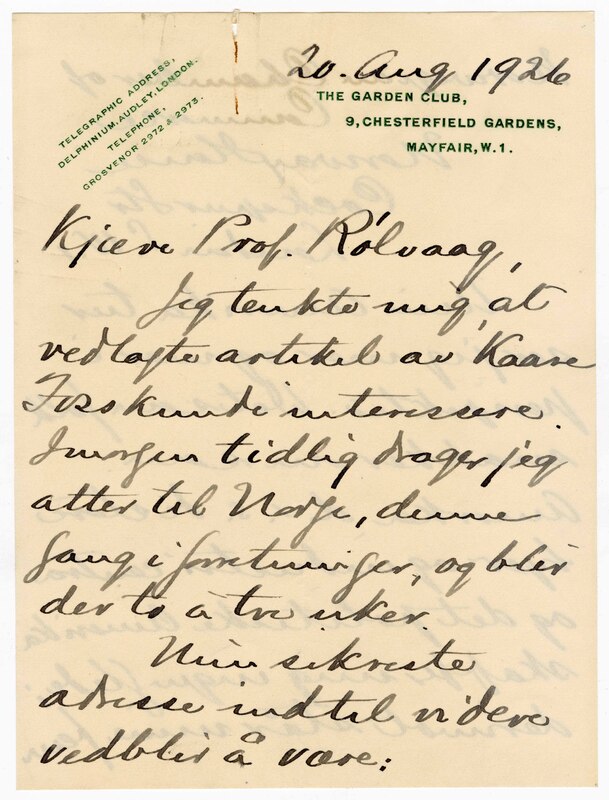 TELEGRAPHIC ADDRESS,
DELPHINIUM, AUDLEY, LONDON.
TELEPHONE,
GROSVENOR 2972 & 2973.
20. Aug 1926
THE GARDEN CLUB,
9, CHESTERFIELD GARDENS,
MAYFAIR, W.1.
Kjære Prof. Rölvaag,
Jeg tenkte mig, at
vedlagte artikel av Kaare
Foss kunde interessere.
Imorgen tidlig drager jeg
atter til Norge, denne
gang i forretninger, og blir
der to à tre uker.
Min sikreste
adresse indtil videre
vedblir å være: